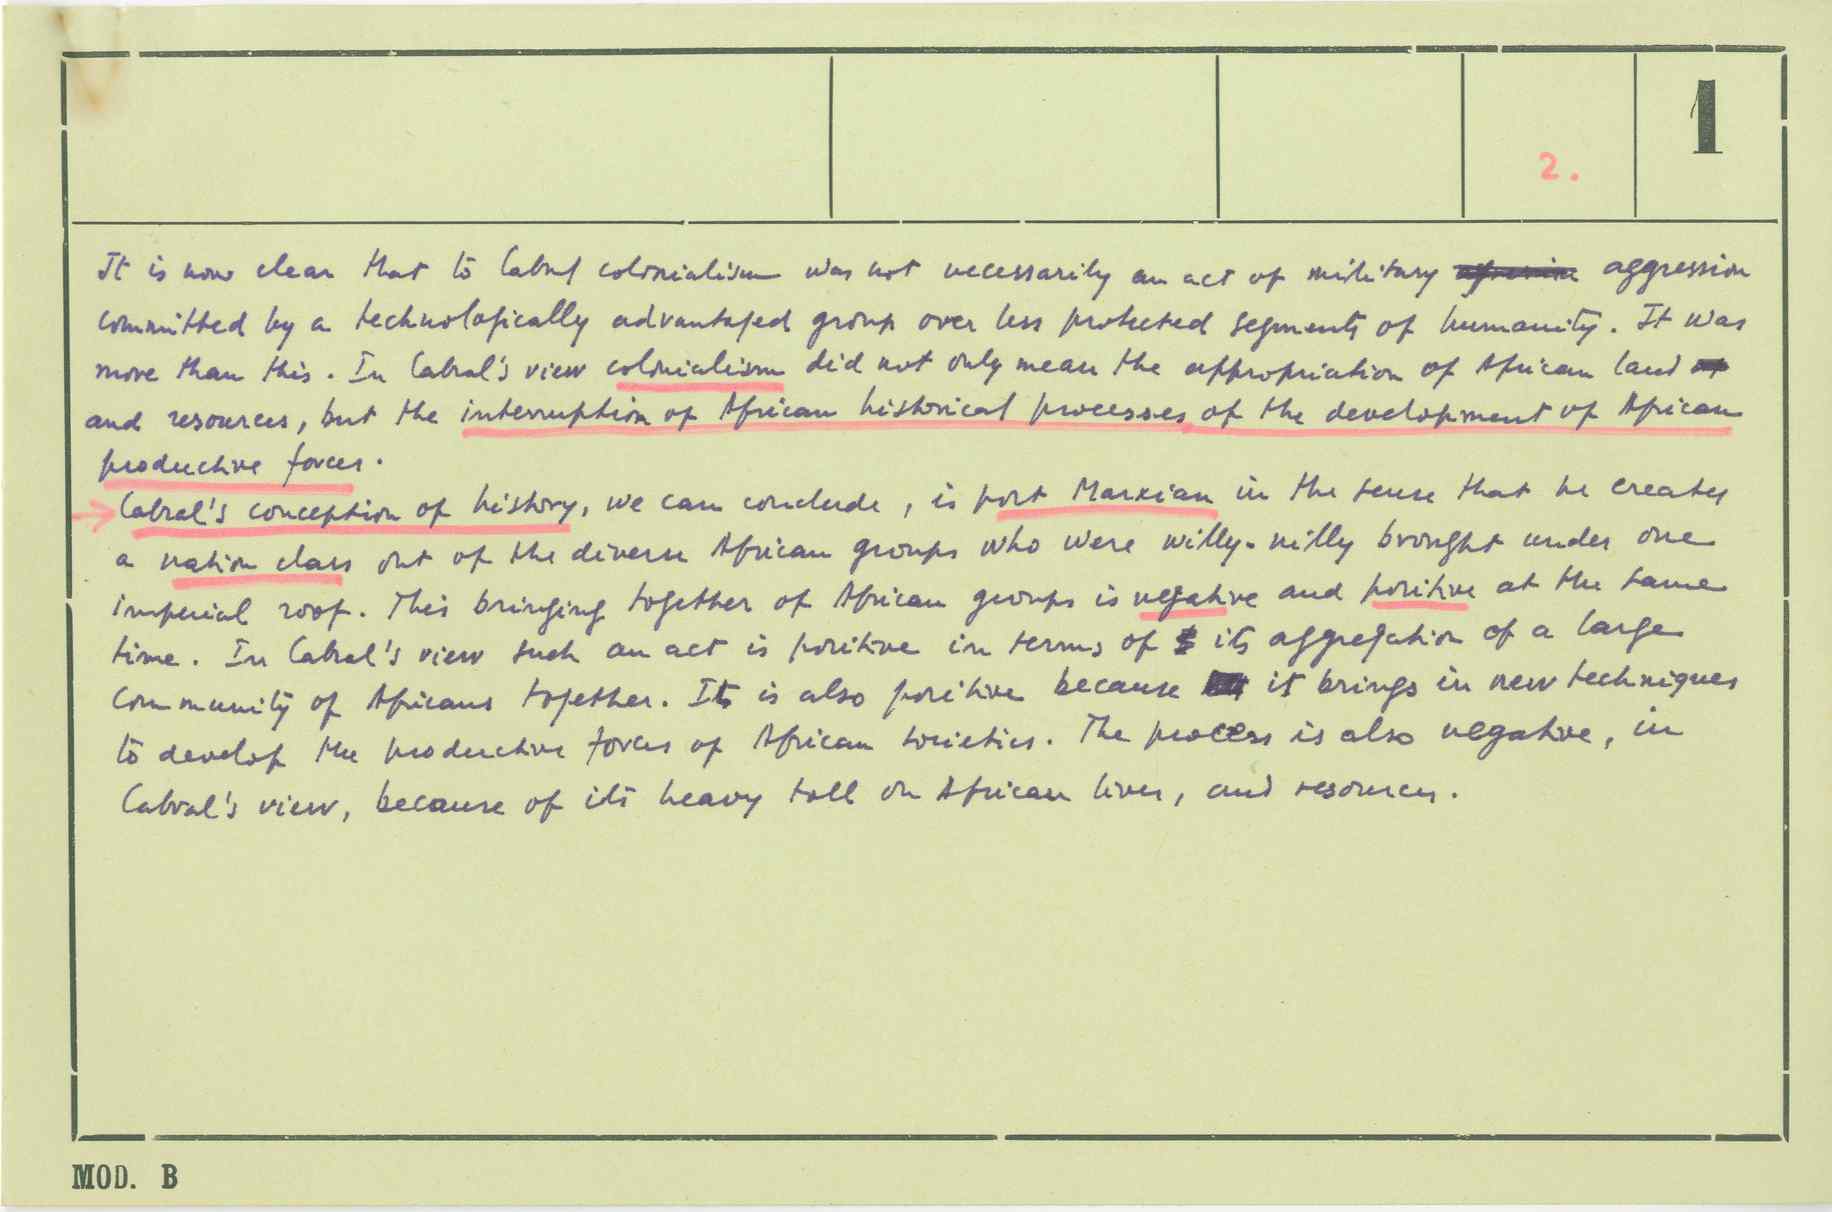 1
2.
It is now clear that to Cabral colonialism was not necessarily an act of military aggression
committed by a technologically advantaged group over less protected segments of humanity. It was
more than this. In Cabral's view colonialism did not only mean the appropriation of African land
and resources, but the interruption of African historical processes of the development of African
productive forces.
→ Cabral's conception of history, we can conclude, is post Marxian in the sense that he creates
a nation class out of the diverse African groups who were willy-nilly brought under one
imperial roof. This bringing together of African groups is negative and positive at the same
time. In Cabral's view such an act is positive in terms of its aggregation of a large
community of Africans together. It is also positive because it brings in new techniques
to develop the productive forces of African societies. The process is also negative, in
Cabral's view, because of its heavy toll on African lives, and resources.
MOD. B